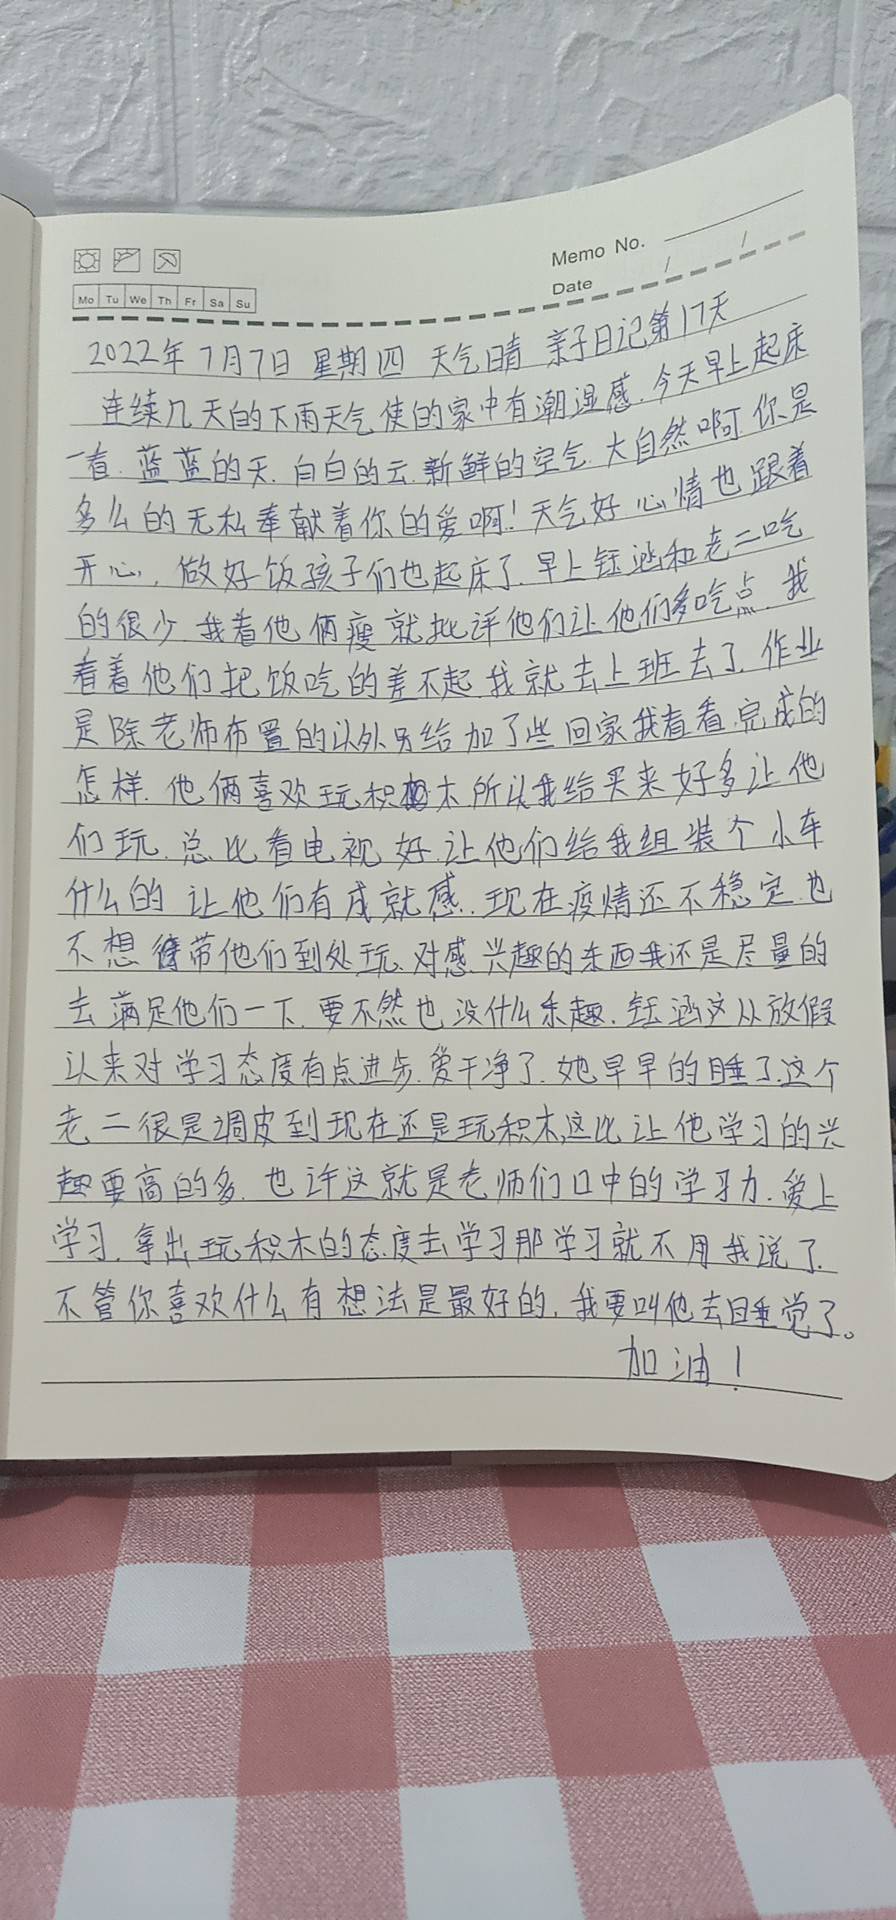 Memo No.
Date / /
Mo Tu We Th Fr Sa Su
2022年7月7日 星期四 天气晴 亲子日记第17天
连续几天的下雨天气使的家中有潮湿感.今天早上起床
一看.蓝蓝的天.白白的云.新鲜的空气.大自然啊你是
多么的无私奉献着你的爱啊!天气好心情也跟着
开心,做好饭孩子们也起床了.早上钰涵和老二吃
的很少.我着他俩瘦就批评他们让他们多吃点.我
看着他们把饭吃的差不起.我就去上班去了.作业
是除老师布置的以外另给加了些回家我看看.完成的
怎样.他俩喜欢玩积木所以我给买来好多让他
们玩.总比看电视好.让他们给我组装个小车
什么的让他们有成就感.现在疫情还不稳定.也
不想带他们到处玩.对感兴趣的东西我还是尽量的
去满足他们一下.要不然也没什么乐趣.钰涵这从放假
以来对学习态度有点进步.爱干净了.她早早的睡了.这个
老二很是调皮到现在还是玩积木,这比让他学习的兴
趣要高的多.也许这就是老师们口中的学习力.爱上
学习.拿出玩积木的态度去学习那学习就不用我说了.
不管你喜欢什么有想法是最好的,我要叫他去睡觉了。
加油!